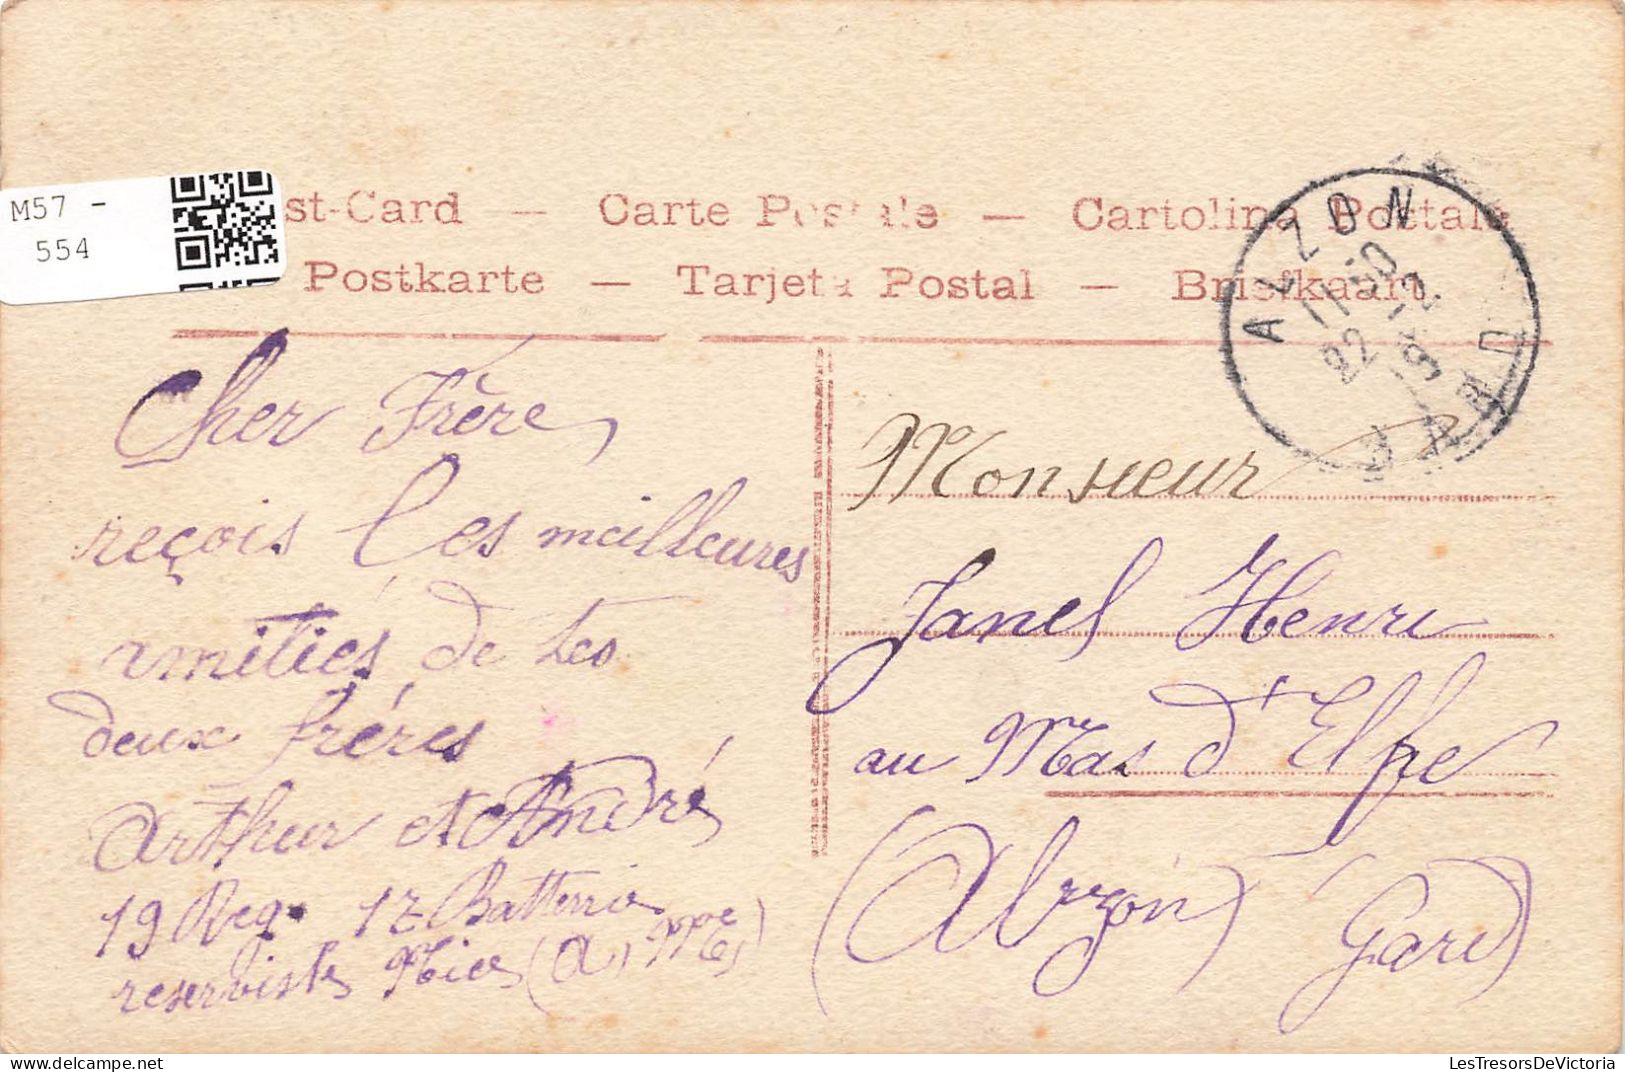 M57 -
554
st-Card — Carte Postale — Cartolina Postale
Postkarte — Tarjeta Postal — Briefkaart
ALZON
GARD
Cher Frère,
reçois les meilleures
amitiés de tes
deux frères
Arthur et André
19 Reg. 12 Batterie
réserviste Nice (A, Mme)
Monsieur
Janel Henri
au Mas d'Elpe
(Alzon Gard)
LesTresorsDeVictoria